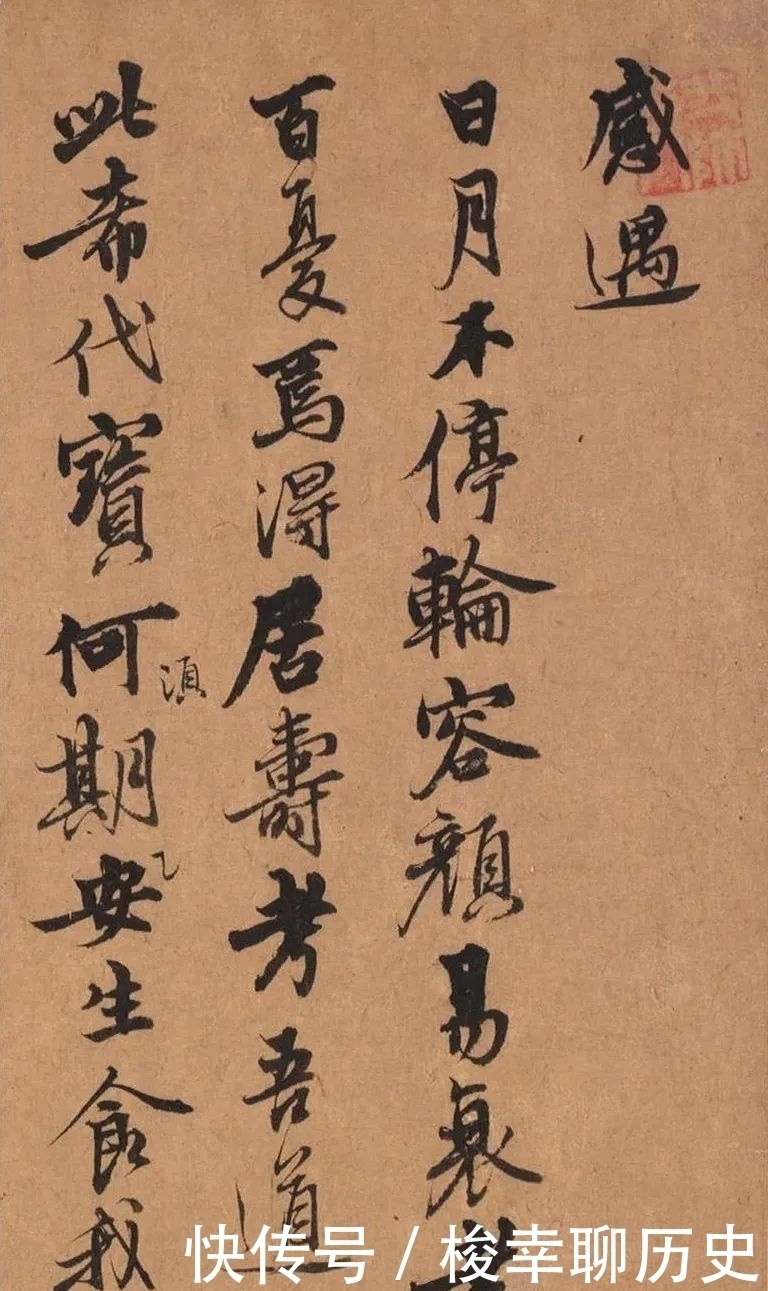 感遇
日月不停輪容顏易衰
百憂焉得居壽考吾道
此希代寶何須期安生食我
快传号 / 梭幸聊历史